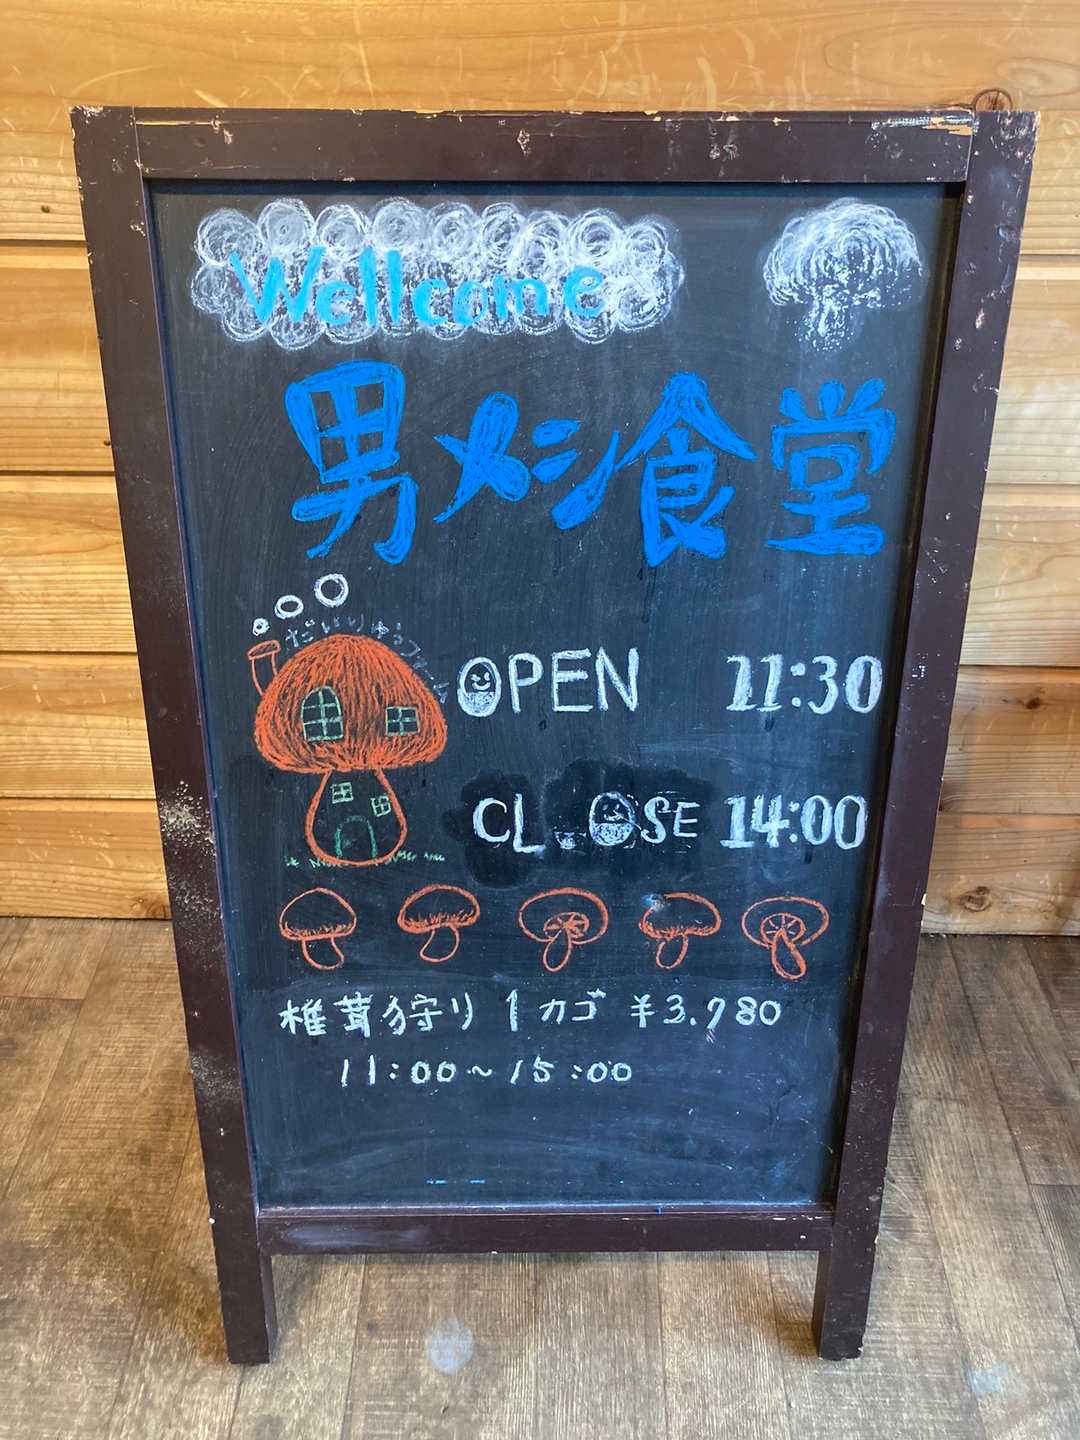 Wellcome
男メシ食堂
だいりゅうファーム
OPEN 11:30
CLOSE 14:00
椎茸狩り 1カゴ ¥3.780
11:00~15:00